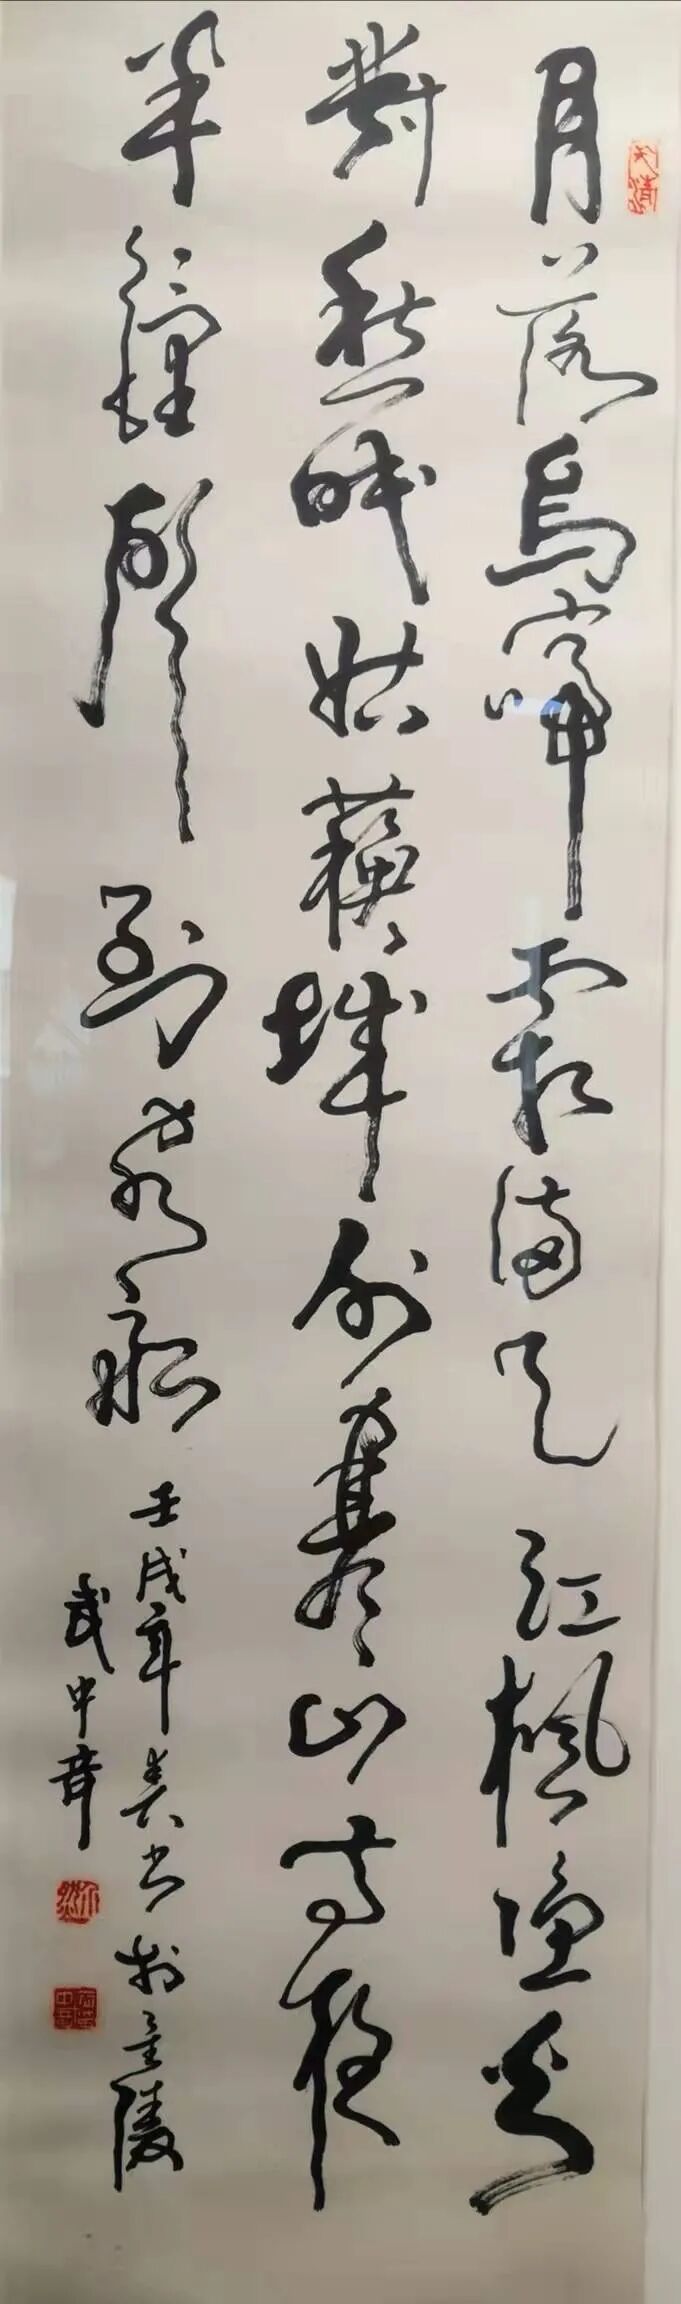 月落烏啼霜滿天江楓漁火
對愁眠姑蘇城外寒山寺夜
半鐘聲到客船
壬戌年春書於金陵
武中奇